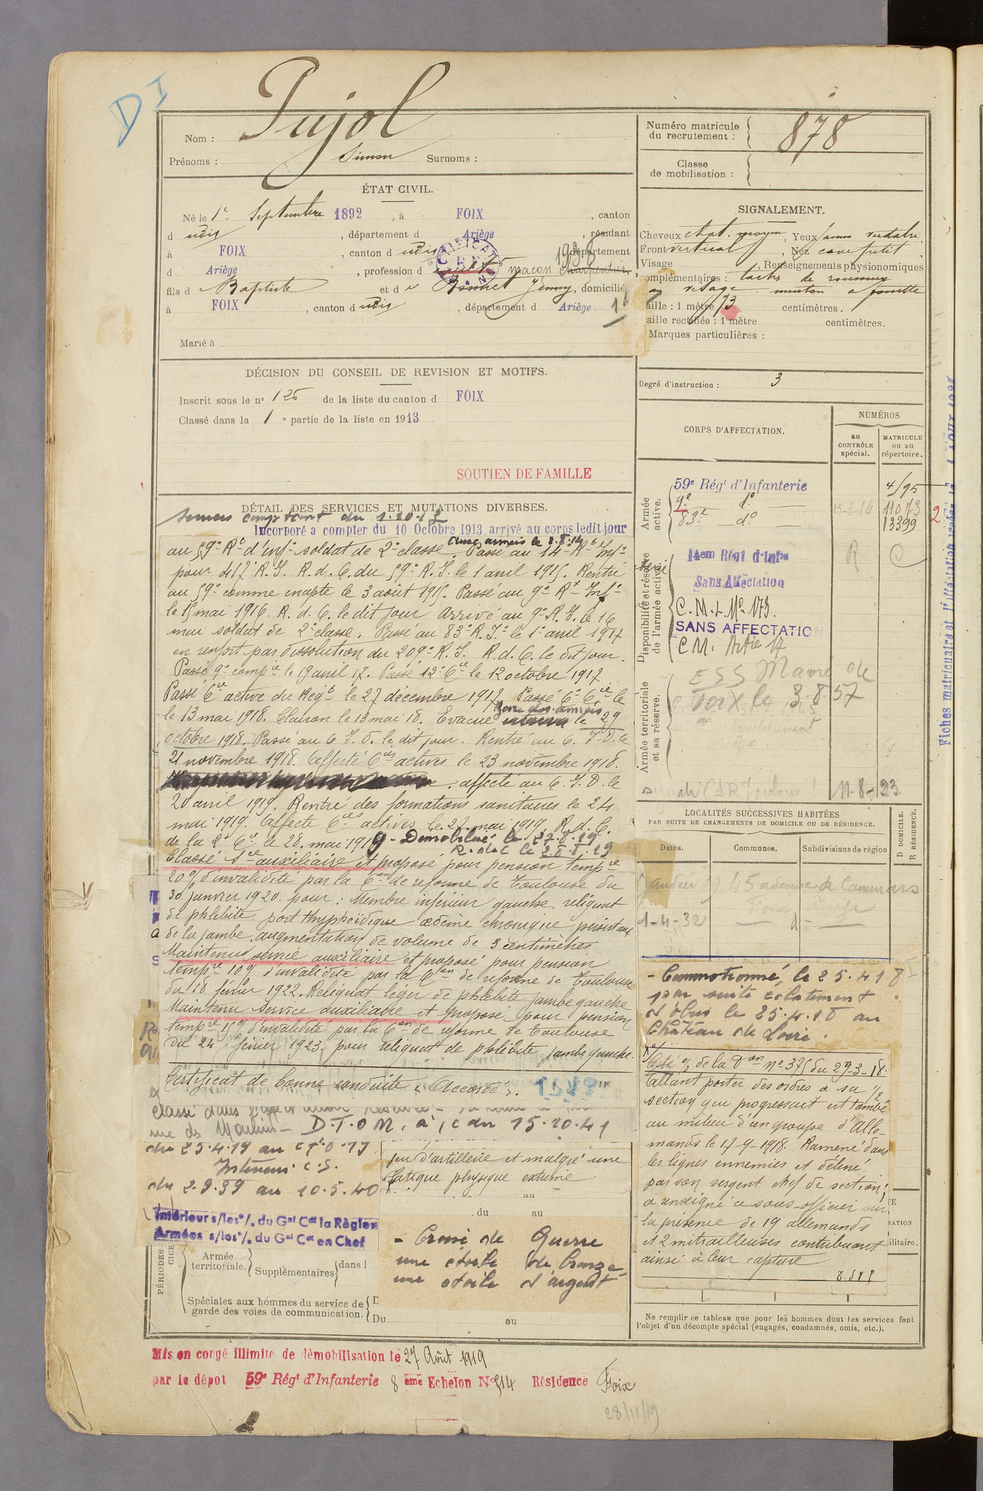 D I
Nom : Pujol
Prénoms : Simon Surnoms :
ÉTAT CIVIL.
Né le 1er Septembre 1892, à FOIX, canton
d udis, département d Ariège, résidant
à FOIX, canton d udis, département
d Ariège, profession d maçon charpentier 1938
fils d Baptiste et de Bonnet Jenny, domiciliés
à FOIX, canton d udis, département d Ariège
Marié à
DÉCISION DU CONSEIL DE REVISION ET MOTIFS.
Inscrit sous le no 126 de la liste du canton d FOIX
Classé dans la 1e partie de la liste en 1913
SOUTIEN DE FAMILLE
DÉTAIL DES SERVICES ET MUTATIONS DIVERSES.
Services comptant du 1.10.13
Incorporé à compter du 10 Octobre 1913 arrivé au corps ledit jour
au 59e Rt d'Infie soldat de 2e classe. Passé au 14e Rt Infie
pour 417e R.I. R.d.C. du 59e R.I. le 1 avril 1915. Rentré
au 59e comme inapte le 3 août 1915. Passé au 9e Rt Infie
le 15 mai 1916. R.d.C. le dit jour Arrivé au 9e R.I. le 16
mai soldat de 2e classe. Passé au 83e R.Ie le 1er avril 1917
en renfort par dissolution du 209e R.I. R.d.C. le dit jour.
Passé 9e compie le 19 avril 17. Passé 12e Cie le 12 octobre 1917
Passé 6e Cie active du Régt le 27 décembre 1917. Passé 6e Cie le
le 13 mai 1918. Clairon le 13 mai 18. Evacué Zone des armées le 29
octobre 1918. Passé au C.I.D. le dit jour. Rentré au C.I.D. le
21 novembre 1918. Affecté Cie actives le 23 novembre 1918.
affecté au C.I.D. le
20 avril 1919. Rentré des formations sanitaires le 24
mai 1919. Affecté Cies actives le 27 mai 1919. R.d.C.
de la 2e Cie le 28 mai 1919 - Démobilisé le 27.8.19
R. de C le 28.8.19
Classé Sce auxiliaire et proposé pour pension tempre
20% d'invalidité par la Con de réforme de Toulouse du
30 janvier 1920 pour : Membre inférieur gauche, reliquat
de phlébite post thyphoïdique œdème chronique persistant
de la jambe, augmentation de volume de 3 centimètres
Maintenu service auxiliaire et proposé pour pension
tempre 10% d'invalidité par la Con de réforme de Toulouse
du 18 février 1922. Reliquat léger de phlébite jambe gauche
Maintenu Service auxiliaire et proposé pour pension
tempre 15% d'invalidité par la Con de réforme de Toulouse
du 24 février 1923 pour reliquat de phlébite jambe gauche.
Certificat de bonne conduite "Accordé".
D.T.O.M. à /c du 15.10.41
Intérieur C.S.
du 2.9.39 au 10.5.40
Intérieur s/les o/. du Gal Ct la Région
Armées s/les o/. du Gal Ct en Chef
feu d'artillerie et malgré une
fatigue physique extrême
au
du au
- Croix de Guerre
une étoile de bronze
une étoile d'argent
PÉRIODES
Armée
territoriale. Supplémentaires dans l
Spéciales aux hommes du service de
garde des voies de communication.
Du au
Numéro matricule
du recrutement : 878
Classe
de mobilisation :
SIGNALEMENT.
Cheveux chat. moyen, Yeux jaune verdatre
Front vertical, Nez cave petit
Visage , Renseignements physionomiques
complémentaires : taches de rousseur
au visage. menton à fossette
Taille : 1 mètre 73 centimètres.
Taille rectifiée : 1 mètre centimètres.
Marques particulières :
Degré d'instruction : 3
CORPS D'AFFECTATION.
NUMÉROS
au CONTRÔLE spécial.
MATRICULE ou au répertoire.
Armée active.
59e Régt d'Infanterie 4195
9e do 11073
83e do 13399
Disponibilité et réserve de l'armée active.
14em Régt d'Infie
Sans Affectation
C.M.I. No 173.
SANS AFFECTATION
C.M. Artie 17
Armée territoriale et sa réserve.
ESS Mairie de
Foix le 3-8-57
11-8-23
LOCALITÉS SUCCESSIVES HABITÉES
PAR SUITE DE CHANGEMENTS DE DOMICILE OU DE RÉSIDENCE.
Dates. Communes. Subdivisions de région
D DOMICILE.
R RÉSIDENCE.
1-4-32
- Commotionné le 25.4.18
par suite éclatement
d'obus le 25.4.18 au
Château de Loire.
Cité % de la Don No 375 du 29-3-18.
Allant porter des ordres à sa ½
section qui progressait est tombé
au milieu d'un groupe d'Alle-
mands le 17-9-1918. Ramené dans
les lignes ennemies et délivré
par son sergent chef de section;
a renseigné ce sous-officier sur
la présence de 19 allemands
et 2 mitrailleuses contribuant
ainsi à leur capture
Ne remplir ce tableau que pour les hommes dont les services font
l'objet d'un décompte spécial (engagés, condamnés, omis, etc.).
Mis en congé illimité de démobilisation le 27 Août 1919
par le dépôt 59e Régt d'Infanterie 8 ème Echelon No 514 Résidence Foix
28/11/19